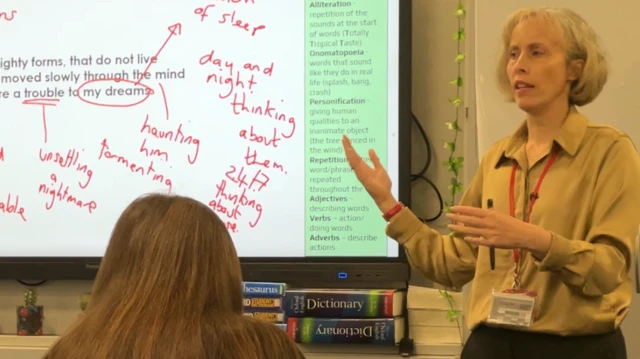 of sleep
ighty forms, that do not live
moved slowly through the mind
re a trouble to my dreams
day and
night
thinking
about
them.
24/7
thinking
about
haunting
him
tormenting
unsettling
a
nightmare
able
Alliteration –
repetition of the
sounds at the start
of words (Totally
Tropical Taste)
Onomatopoeia –
words that sound
like they do in real
life (splash, bang,
crash)
Personification –
giving human
qualities to an
inanimate object
(the tree danced in
the wind)
Repetition
word/phrase
repeated
throughout the
Adjectives –
describing words
Verbs – action/
doing words
Adverbs – describe
actions
Thesaurus
Dictionary
Dictionary